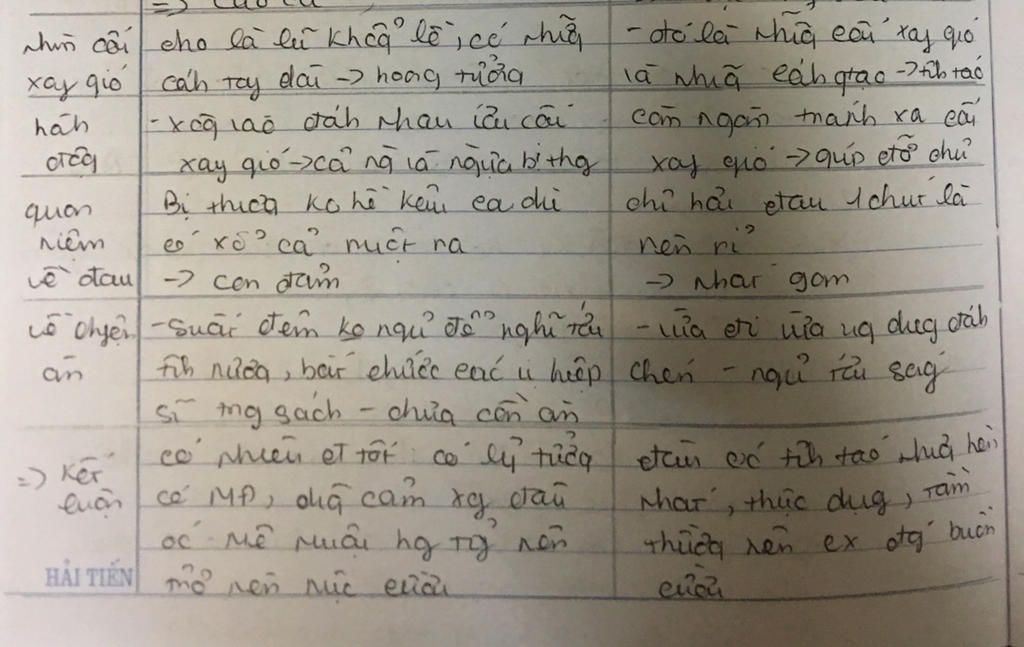 nhìn cối
xay gió
cho là lũ khổng lồ, có nhữg
cánh tay dài -> hoang tưởng
- đó là nhữg cối xay gió
là nhữg cánh quạt -> tỉnh táo
hành
động
- xông vào đánh nhau với cối
xay gió -> cả ng và ngựa bị thg
can ngăn tránh xa cối
xay gió -> giúp đỡ chủ
quan
niệm
về đau
Bị thương ko hề kêu ca dù
có xổ cả ruột ra
-> can đảm
chỉ hơi đau 1 chút là
rên rỉ
-> nhát gan
về chuyện
ăn
- suốt đêm ko ngủ để nghĩ tới
tình nương, bắt chước các vị hiệp
sĩ trog sách - chưa cần ăn
- vừa đi vừa ug dug đáh
chén - ngủ tới ság
=> kết
luận
có nhiều đ tốt có lý tưởg
có MĐ, dũg cảm xg đầu
óc mê muội hg tg nên
trở nên nực cười
đầu óc tỉh táo nhưg hèn
nhát, thực dụg, tầm
thườg nên cx đág buồn
cười
HẢI TIẾN